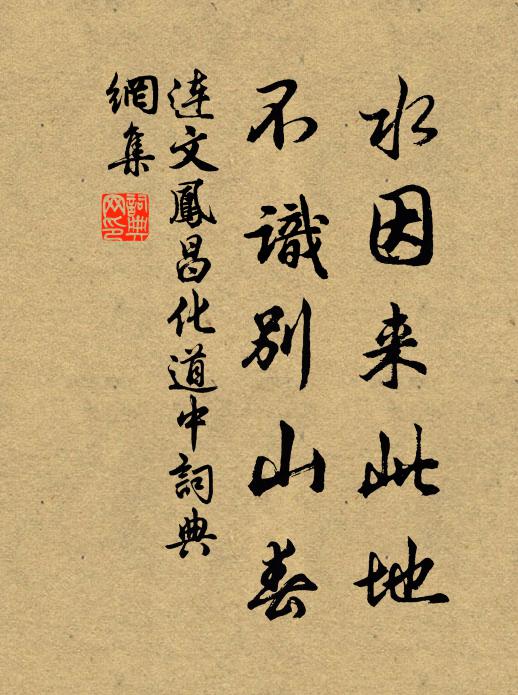 水因来此地
不識别山春
连文鳳昌化道中詞典
網集
詞典
网印